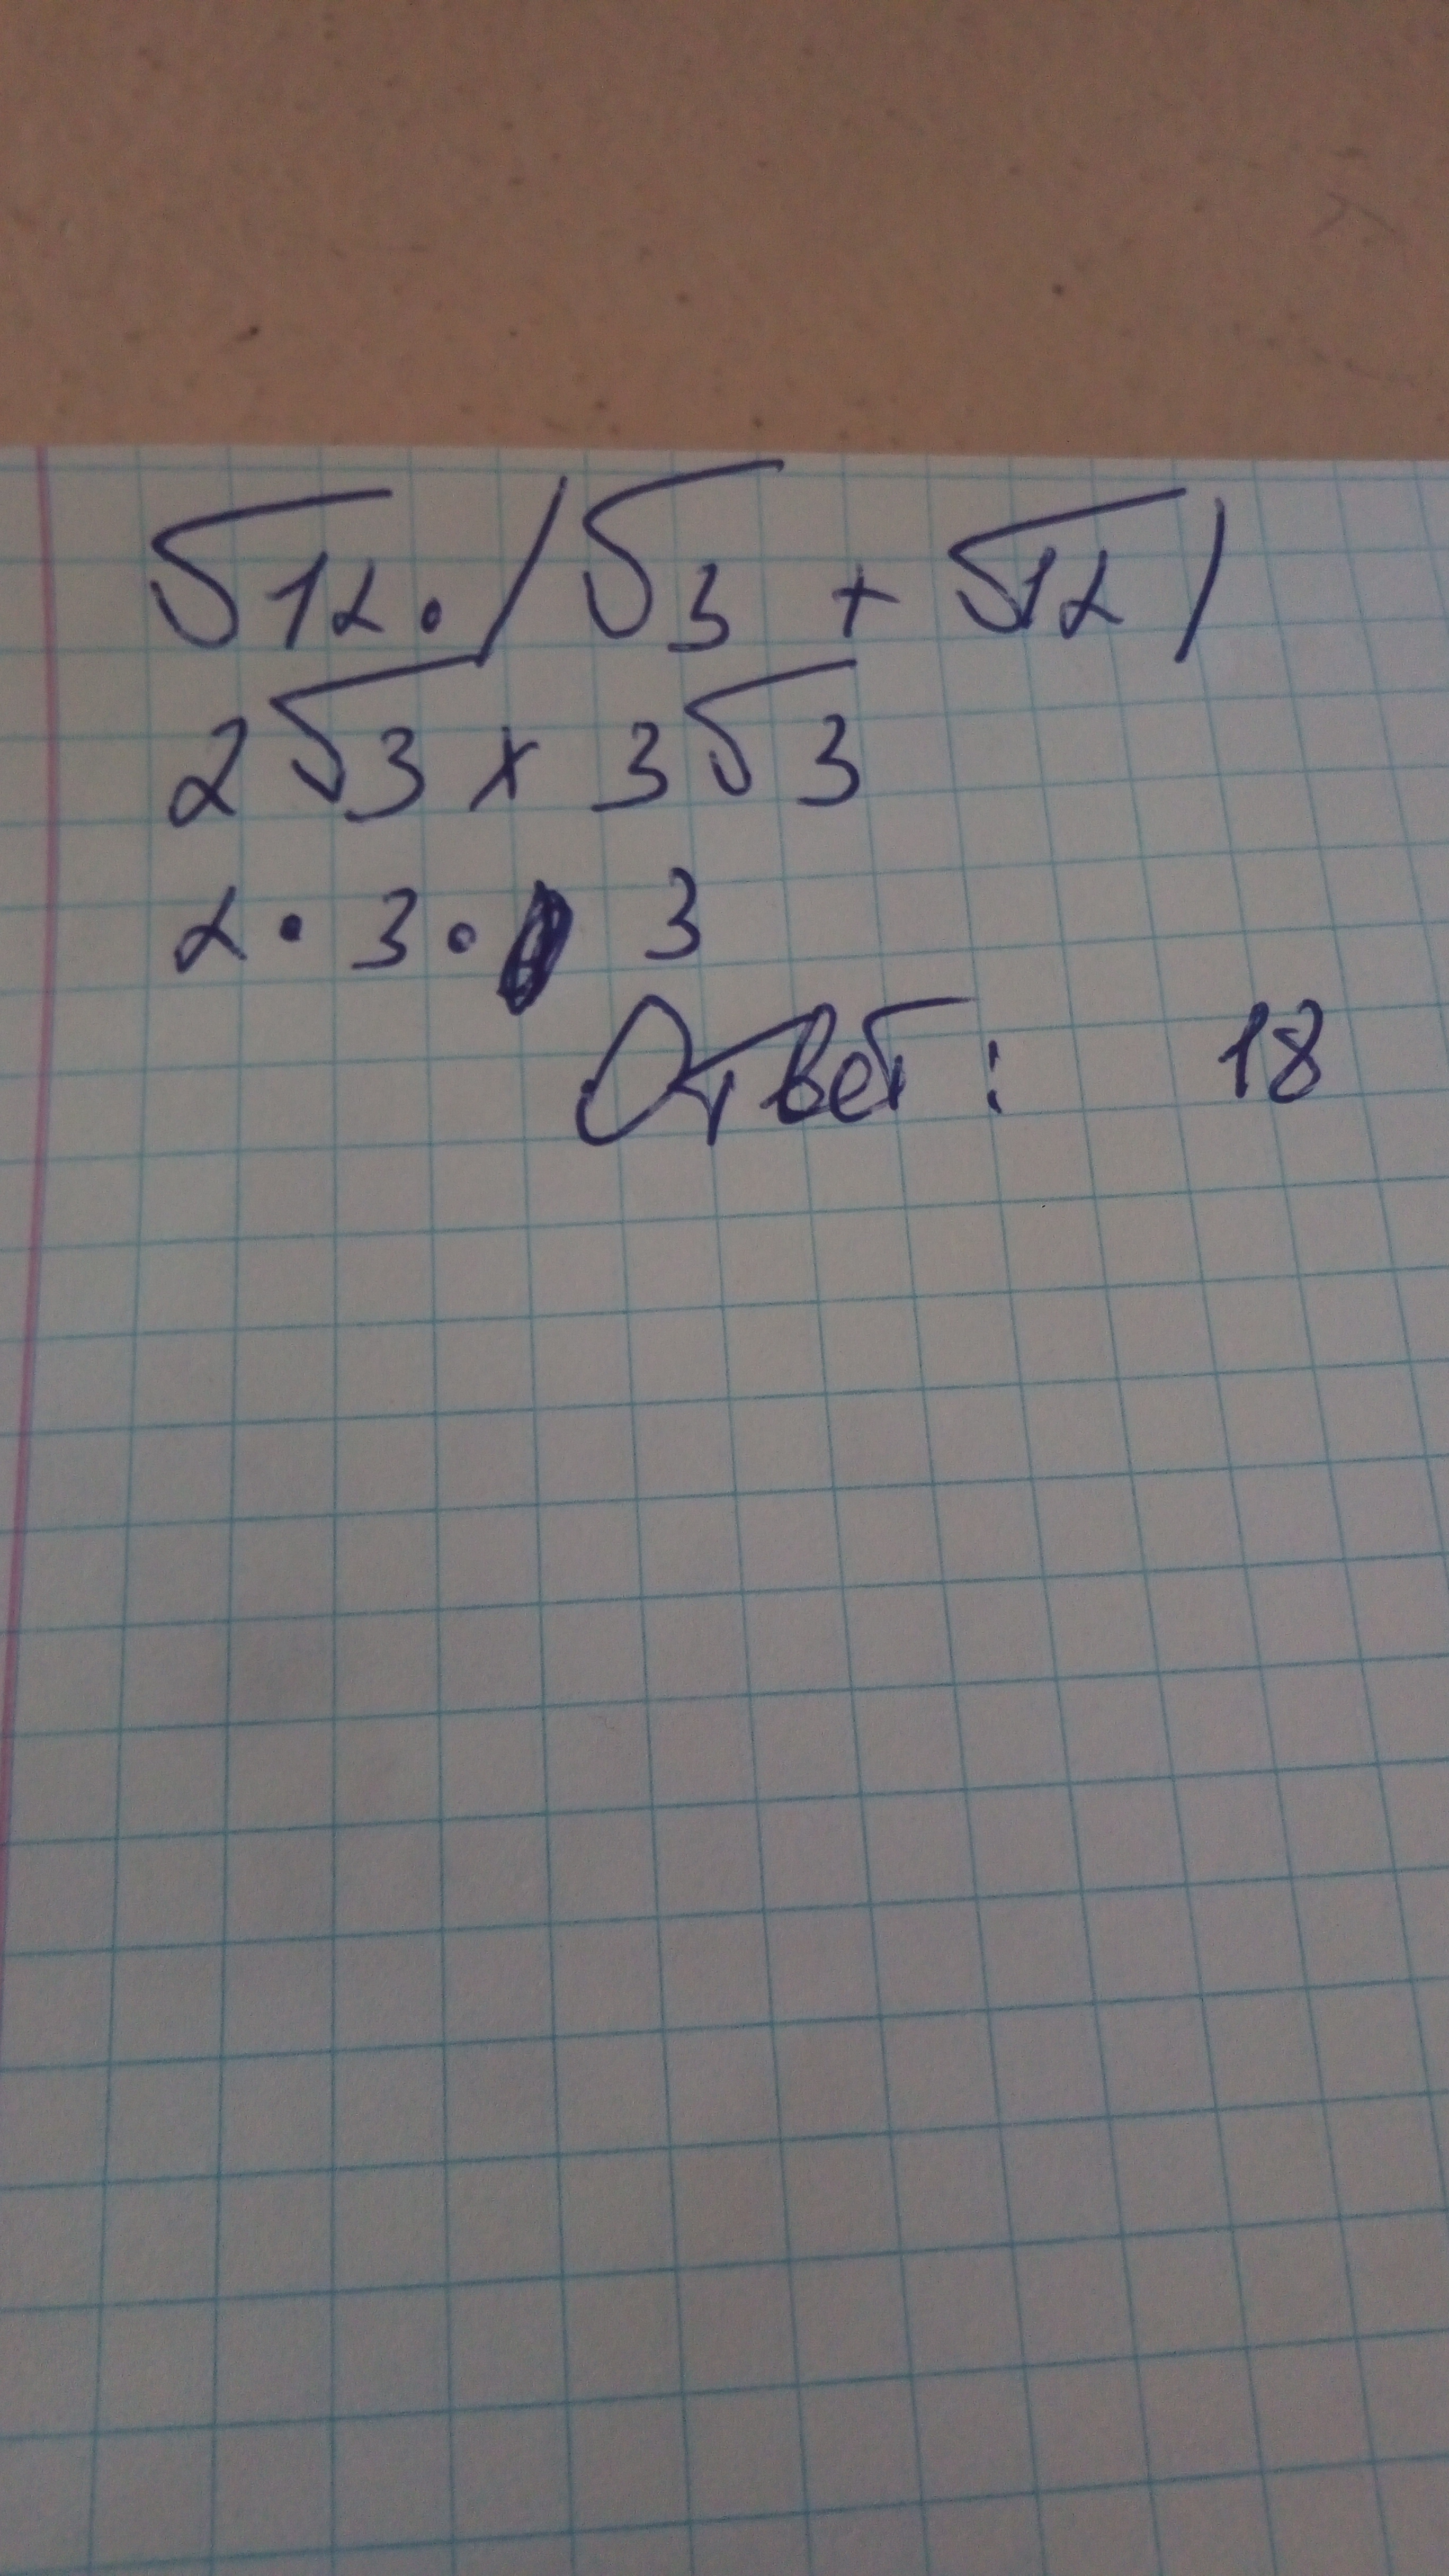 √12 · (√3 + √12)
2√3 × 3√3
2 · 3 · 3
Ответ: 18